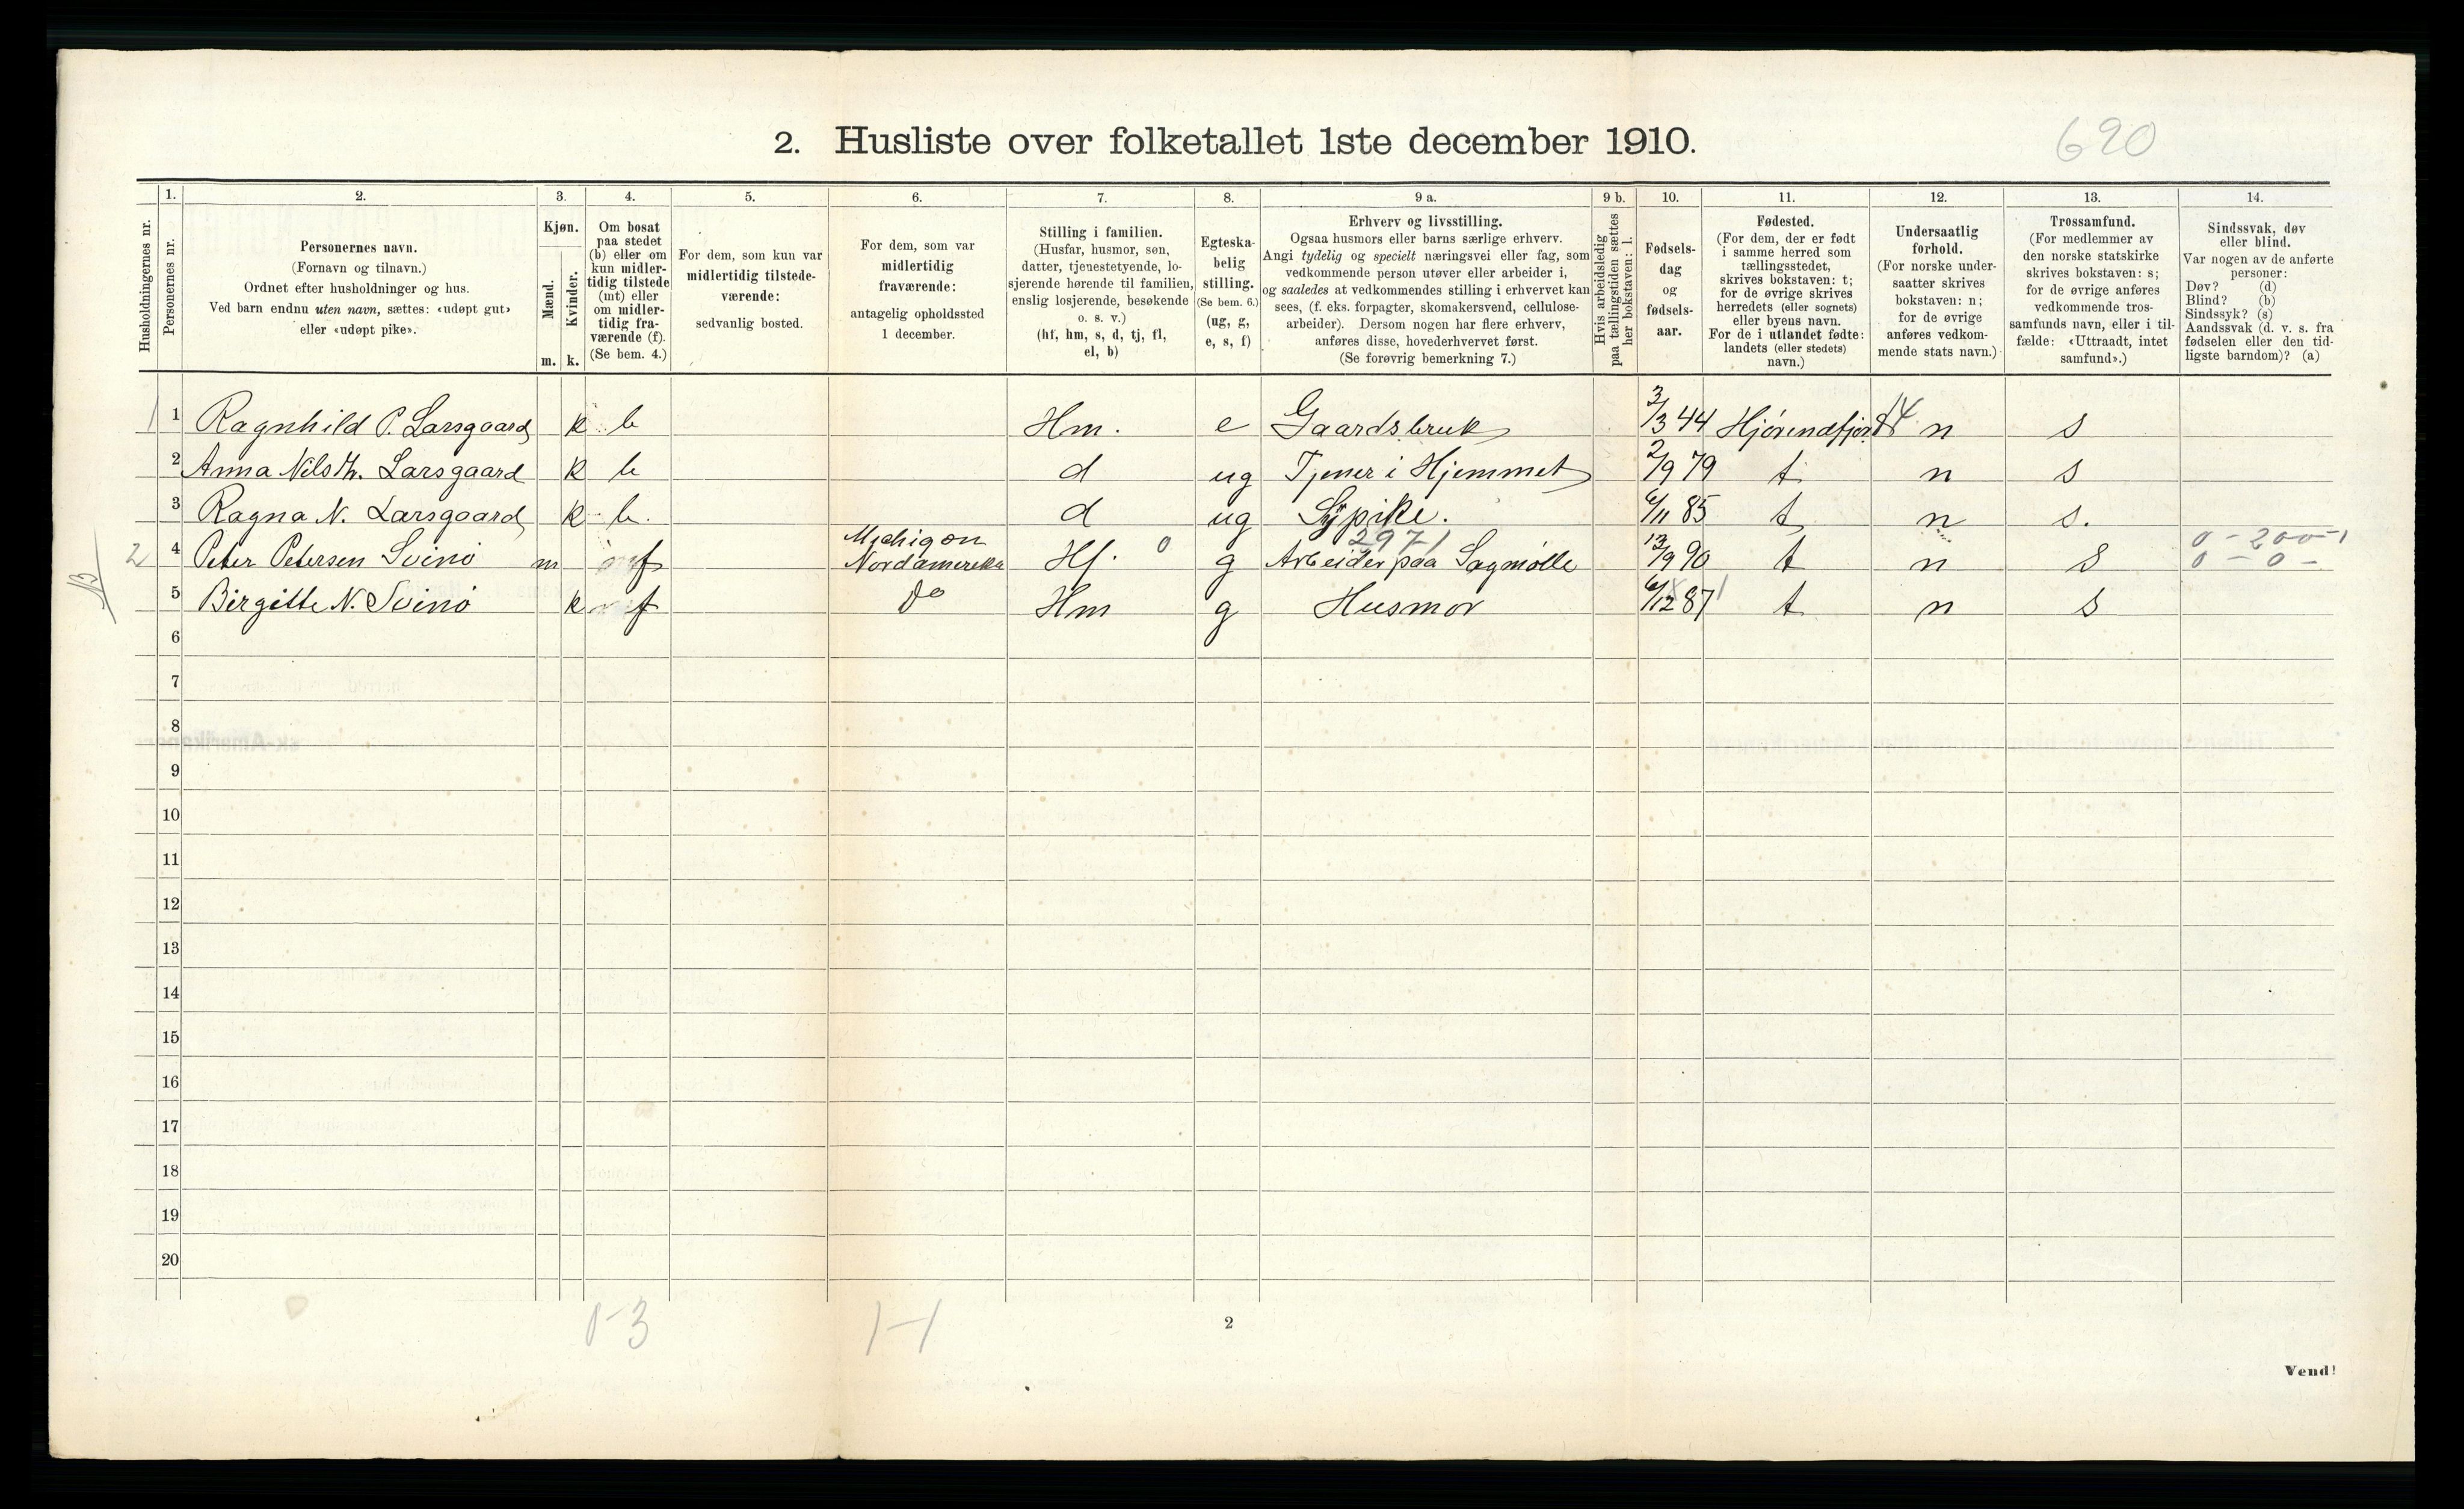 2. Husliste over folketallet 1ste december 1910.
620
Husholdningernes nr.
1.
Personernes nr.
2.
Personernes navn.
(Fornavn og tilnavn.)
Ordnet efter husholdninger og hus.
Ved barn endnu uten navn, sættes: «udøpt gut»
eller «udøpt pike».
3.
Kjøn.
Mænd.
Kvinder.
m. k.
4.
Om bosat
paa stedet
(b) eller om
kun midler-
tidig tilstede
(mt) eller
om midler-
tidig fra-
værende (f).
(Se bem. 4.)
5.
For dem, som kun var
midlertidig tilstede-
værende:
sedvanlig bosted.
6.
For dem, som var
midlertidig
fraværende:
antagelig opholdssted
1 december.
7.
Stilling i familien.
(Husfar, husmor, søn,
datter, tjenestetyende, lo-
sjerende hørende til familien,
enslig losjerende, besøkende
o. s. v.)
(hf, hm, s, d, tj, fl,
el, b)
8.
Egteska-
belig
stilling.
(Se bem. 6.)
(ug, g,
e, s, f)
9 a.
Erhverv og livsstilling.
Ogsaa husmors eller barns særlige erhverv.
Angi tydelig og specielt næringsvei eller fag, som
vedkommende person utøver eller arbeider i,
og saaledes at vedkommendes stilling i erhvervet kan
sees, (f. eks. forpagter, skomakersvend, cellulose-
arbeider). Dersom nogen har flere erhverv,
anføres disse, hovederhvervet først.
(Se forøvrig bemerkning 7.)
9 b.
Hvis arbeidsledig
paa tællingstiden sættes
her bokstaven: l.
10.
Fødsels-
dag
og
fødsels-
aar.
11.
Fødested.
(For dem, der er født
i samme herred som
tællingsstedet,
skrives bokstaven: t;
for de øvrige skrives
herredets (eller sognets)
eller byens navn.
For de i utlandet fødte:
landets (eller stedets)
navn.)
12.
Undersaatlig
forhold.
(For norske under-
saatter skrives
bokstaven: n;
for de øvrige
anføres vedkom-
mende stats navn.)
13.
Trossamfund.
(For medlemmer av
den norske statskirke
skrives bokstaven: s;
for de øvrige anføres
vedkommende tros-
samfunds navn, eller i til-
fælde: «Uttraadt, intet
samfund».)
14.
Sindssvak, døv
eller blind.
Var nogen av de anførte
personer:
Døv? (d)
Blind? (b)
Sindssyk? (s)
Aandssvak (d. v. s. fra
fødselen eller den tid-
ligste barndom)? (a)
1 1 Ragnhild P. Larsgaard k b Hm. e Gaardsbruk 3/3 44 Hjørendfjord 14 n s
2 Anna Nilsth. Larsgaard k b d ug Tjener i Hjemmet 2/9 79 t n s
3 Ragna N. Larsgaard k b. d ug Sypike. 6/11 85 t n s.
Michigan 2971 0-200-1
2 4 Peter Petersen Svinø m f Nordamerika Hf. 0 g Arbeider paa Sagmølle 13/9 90 t n s 0-0-
5 Birgitte N. Svinø k f do Hm g Husmor 6/12 87 t n s
6
7
8
9
10
11
12
13
14
15
16
17
18
19
20
0-3
1-1
2
Vend!